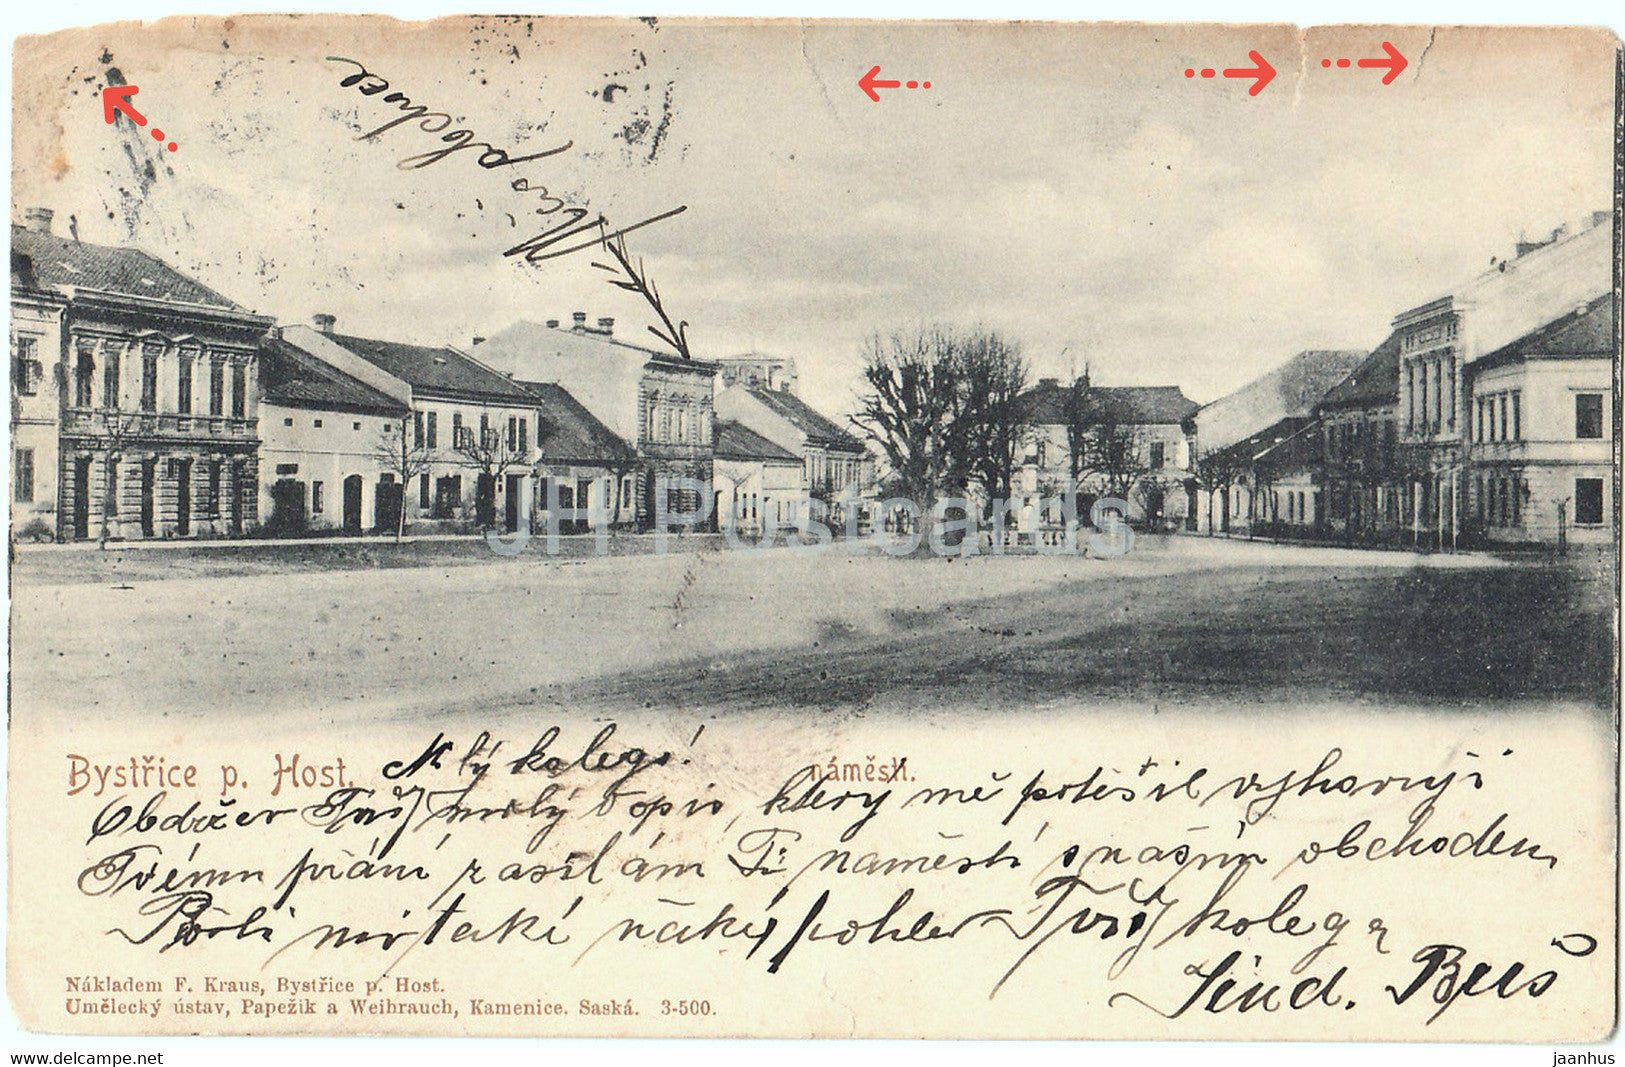 Náš obchod
JH Postcards
Bystřice p. Host. náměstí.
Milý kolego!
Obdržev Tvůj milý dopis, který mě potěšil vyhovuji
Tvému přání zasílám Ti naměstí s našim obchodem
Pošli mi také nějaký pohled Tvůj kolega
Jind. Bus
Nákladem F. Kraus, Bystřice p. Host.
Umělecký ústav, Papežik a Weihrauch, Kamenice. Saská. 3-500.
www.jhpostcards.com
jaanhus